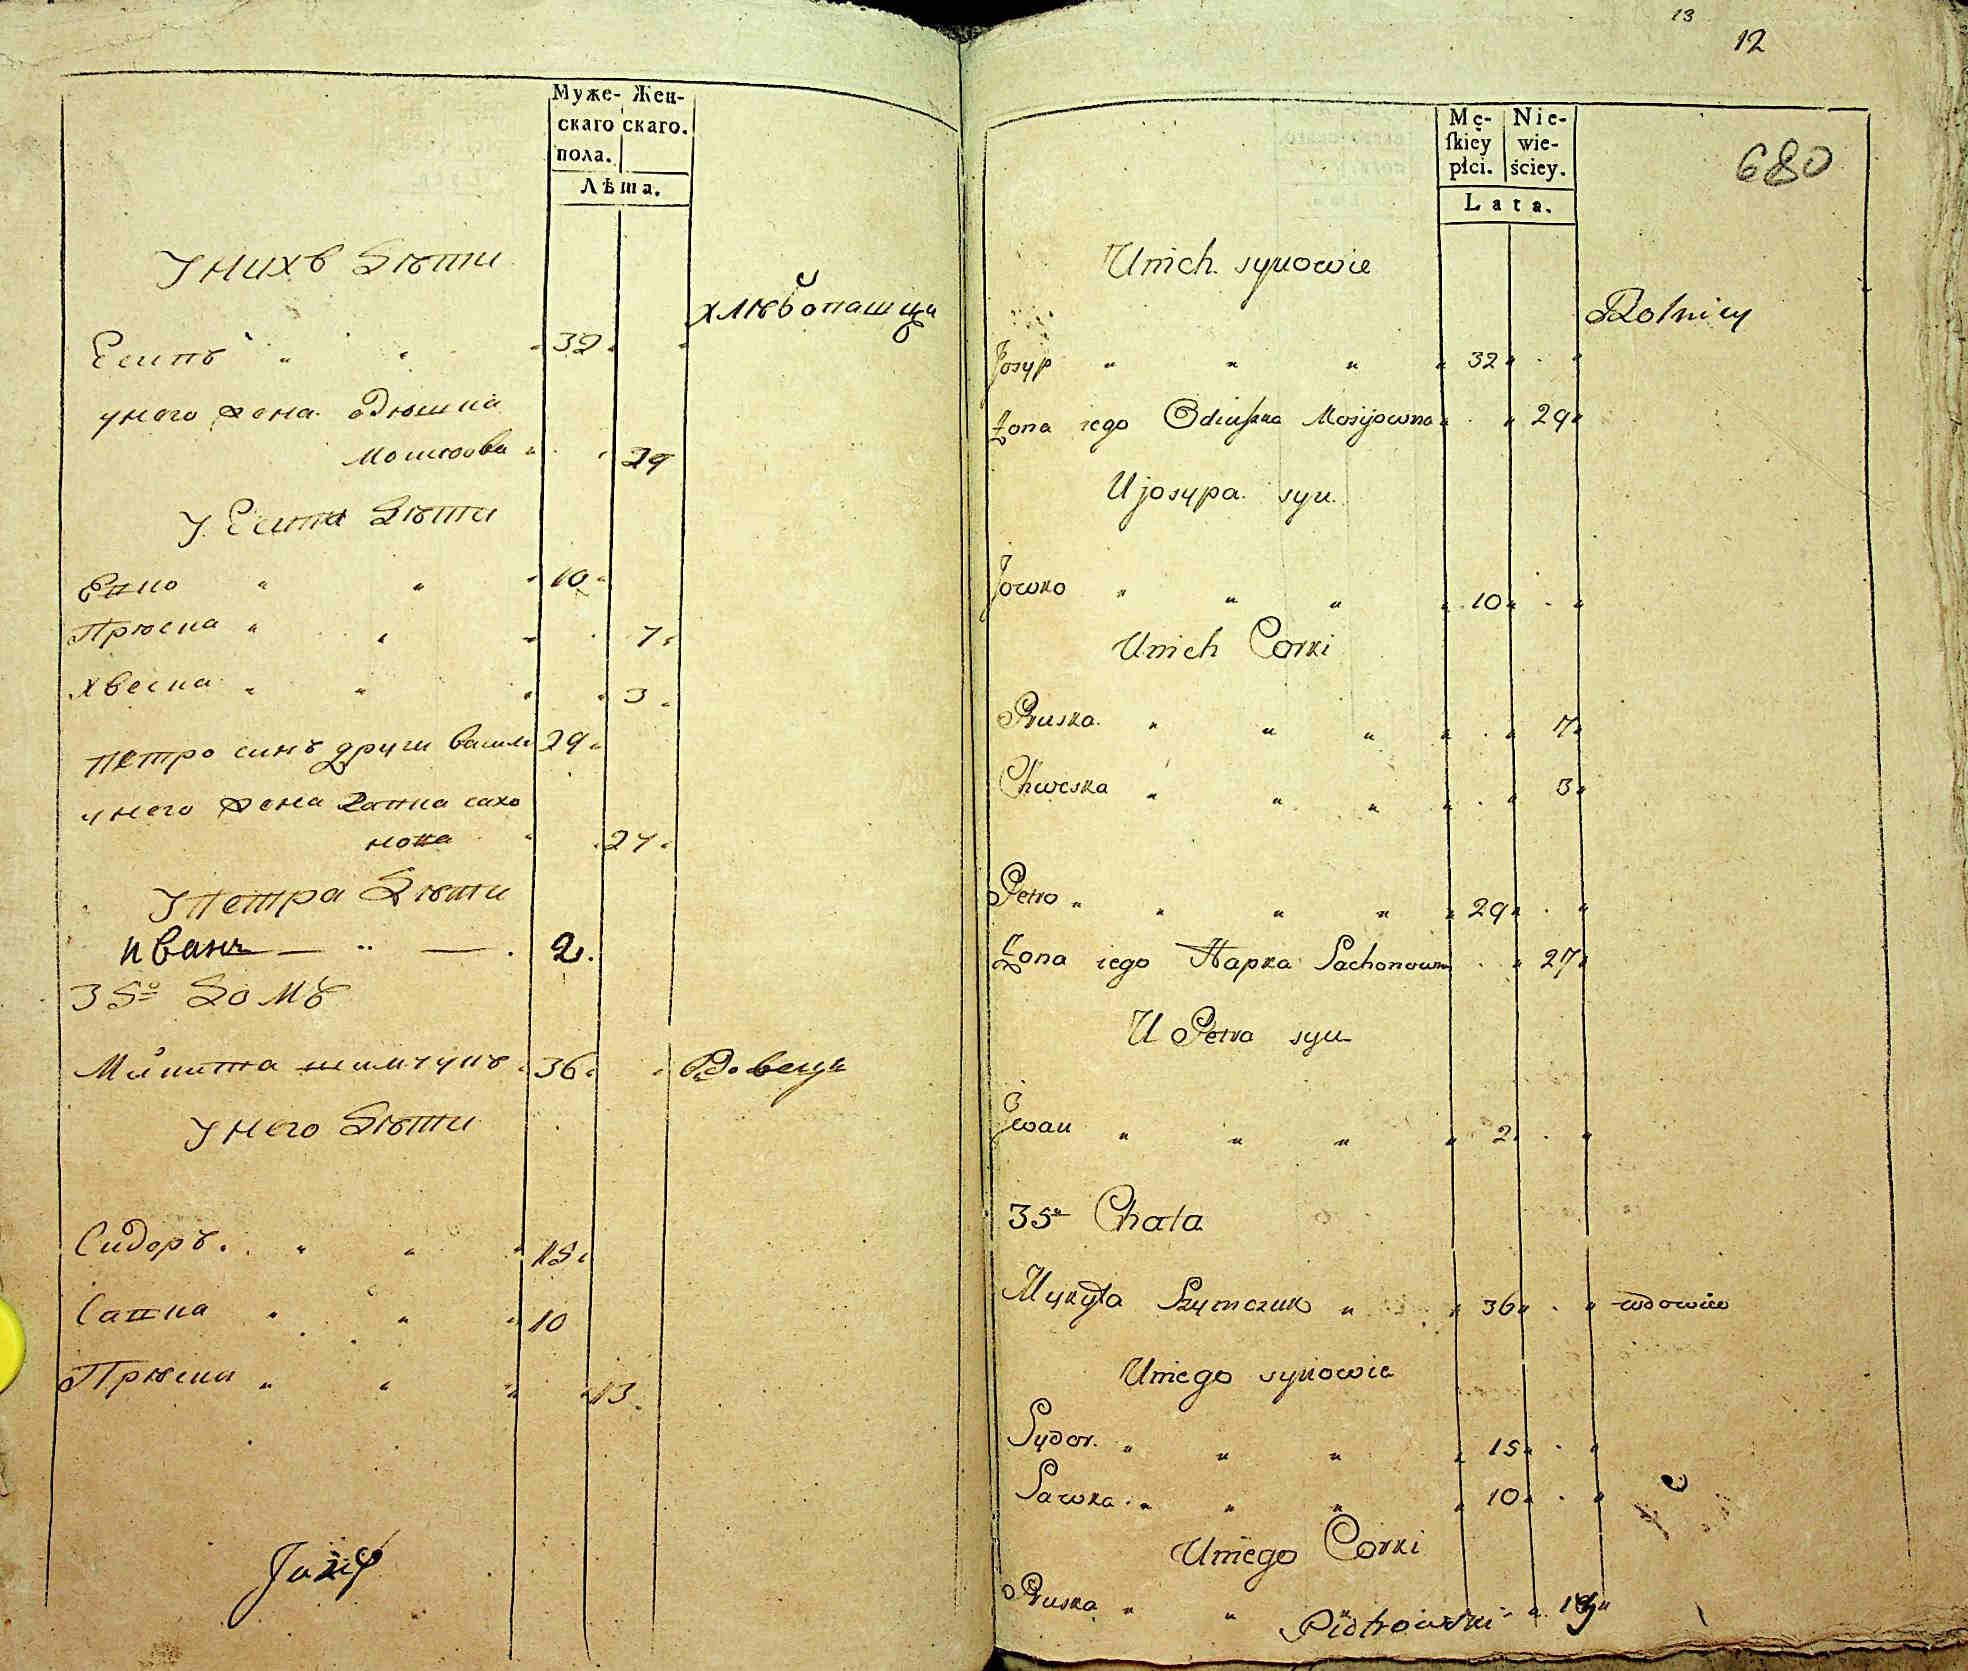 Муже- Жен-
скаго скаго.
пола.
Лѣта.
У нихъ дѣти
хлѣбопашци
Есипъ 32
у него жена одюшка
Мошеова 29
У Есипа дѣти
Евко 10
Прюска 7
Хвеска 3
петро синъ други васили 29
у него жена Гапка сахо
нова 27
У петра дѣти
иванъ 2
35о домъ
Микита шимчукъ 36 Вдовецъ
У него дѣти
Сидоръ 15
Савка 10
Прюска 13
Józef
13
12
Mę- Nie-
skiey wie-
płci. ściey.
Lata.
680
Unich synowie
Rolnicy
Josyp 32
Żona iego Odiuszka Mosijowna 29
U josypa syn
Jowko 10
Unich Corki
Pruska 7
Chweska 3
Petro 29
Żona iego Hapka Sachonowna 27
U Petra syn
Jwan 2
35a Chata
Mykyta Szymczuk 36 wdowiec
Uniego synowie
Sydor 15
Sawka 10
Uniego Corki
Pruska 13
Piotrowski